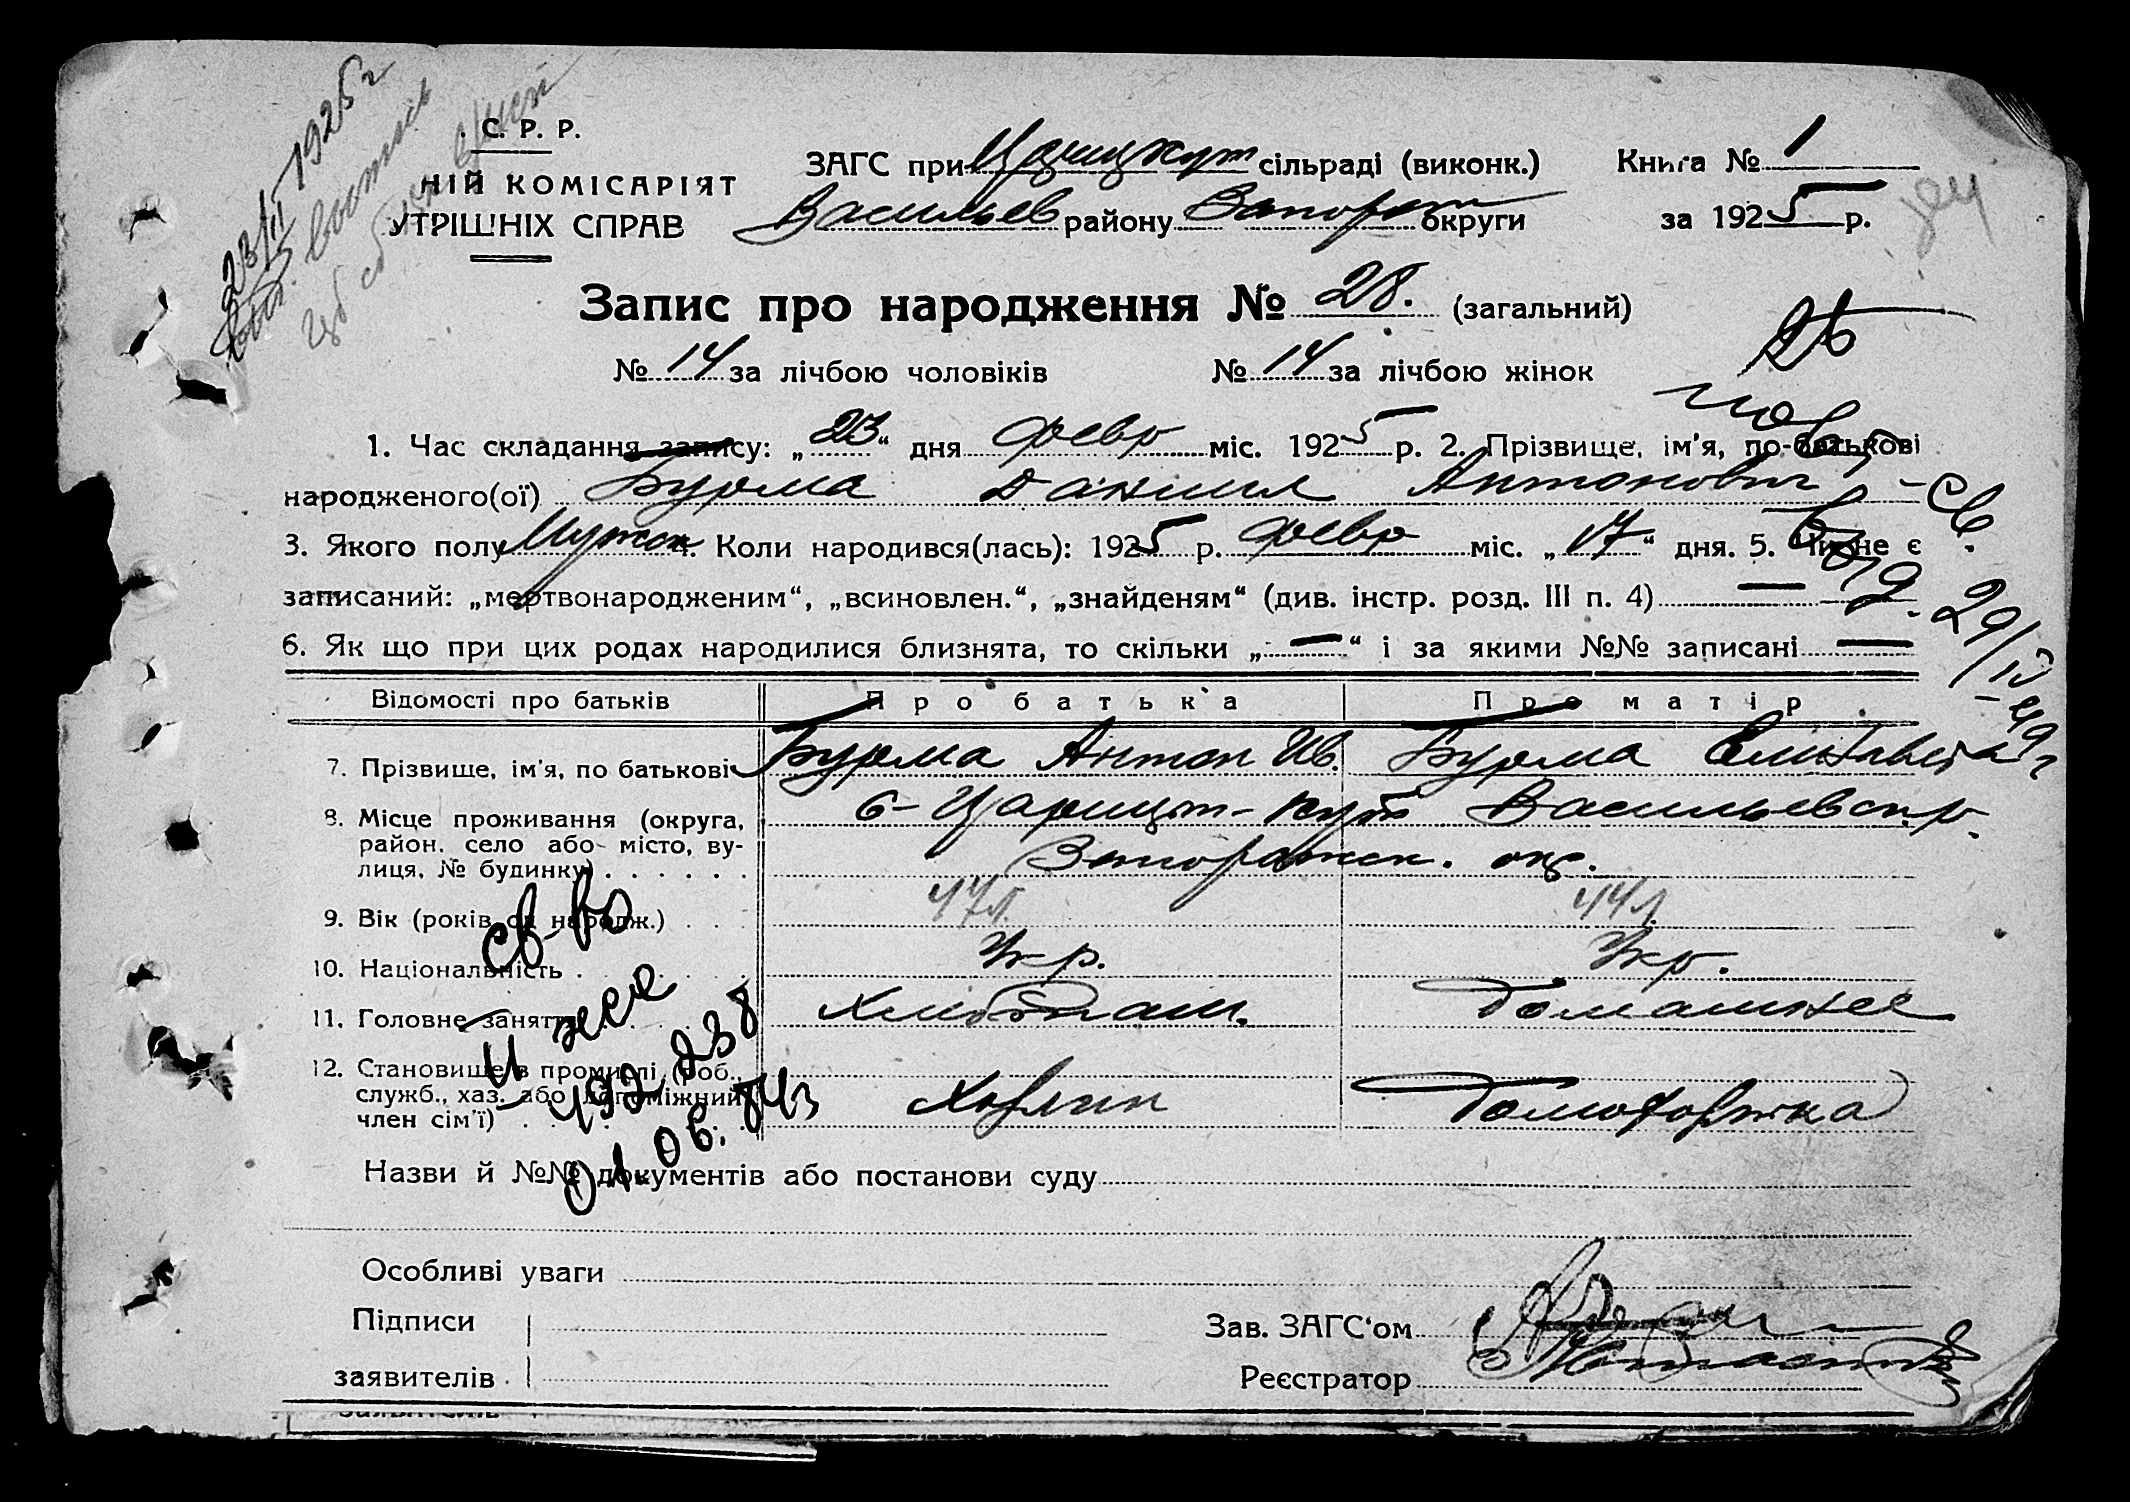 23/II 1925 г
С. Р. Р.
НІЙ КОМІСАРІЯТ
УТРІШНІХ СПРАВ
ЗАГС при Царицкут сільраді (виконк.) Книга № 1
Васильев району Запорож округи за 1925 р.
Запис про народження № 28. (загальний)
№ 14 за лічбою чоловіків № 14 за лічбою жінок
1. Час складання запису: „23“ дня февр міс. 1925 р. 2. Прізвище, ім'я, по-батькові
народженого(ої) Бурма Даниил Антонович
3. Якого полу Мужск 4. Коли народився(лась): 1925 р. февр міс. „17“ дня. 5. Чи не є
записаний: „мертвонародженим“, „всиновлен.“, „знайденям“ (див. інстр. розд. III п. 4) —
6. Як що при цих родах народилися близнята, то скільки „—“ і за якими №№ записані —
пов. св.
выд. 29/IV-49 г
Відомості про батьків Про батька Про матір
7. Прізвище, ім'я, по батькові Бурма Антон Ив. Бурма Елизавета
8. Місце проживання (округа, с-Царицын-Кут Васильевск. р.
район, село або місто, ву-
лиця, № будинку) Запорожск. окр.
9. Вік (років од народж.) 47 л. 44 л.
10. Національність Укр. Укр.
11. Головне заняття Хлебопаш. Домашнее
12. Становище в промислі (роб.,
служб., хаз. або допоміжний
член сім'ї) Хозяин Домохозяйка
св-во
Назви й №№ документів або постанови суду
Особливі уваги
Підписи
заявителів
Зав. ЗАГС‘ом
Реєстратор